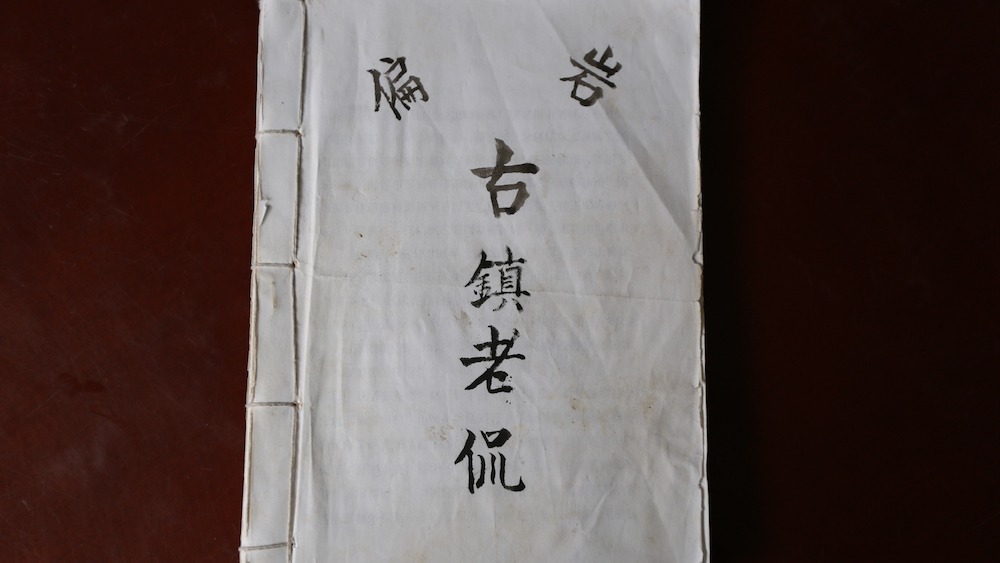 偏岩
古鎮老侃